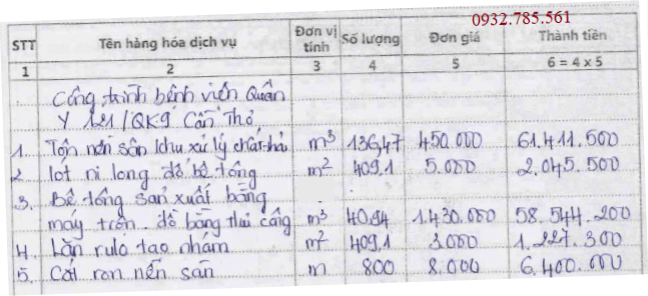 0932.785.561
STT Tên hàng hóa dịch vụ Đơn vị tính Số lượng Đơn giá Thành tiền
1 2 3 4 5 6 = 4 x 5
Công trình bệnh viện Quân
Y 121 / QK9 Cần Thơ
1. Tôn nền sân khu xử lý chất thải m³ 136,47 450.000 61.411.500
2 lót ni long đổ bê tông m² 409,1 5.000 2.045.500
3. Bê tông sản xuất bằng
máy trộn đổ bằng thủ công m³ 40.94 1.430.000 58.544.200
4. Lăn rulo tạo nhám m² 409,1 3.000 1.227.300
5. Cắt ron nền sân m 800 8.000 6.400.000